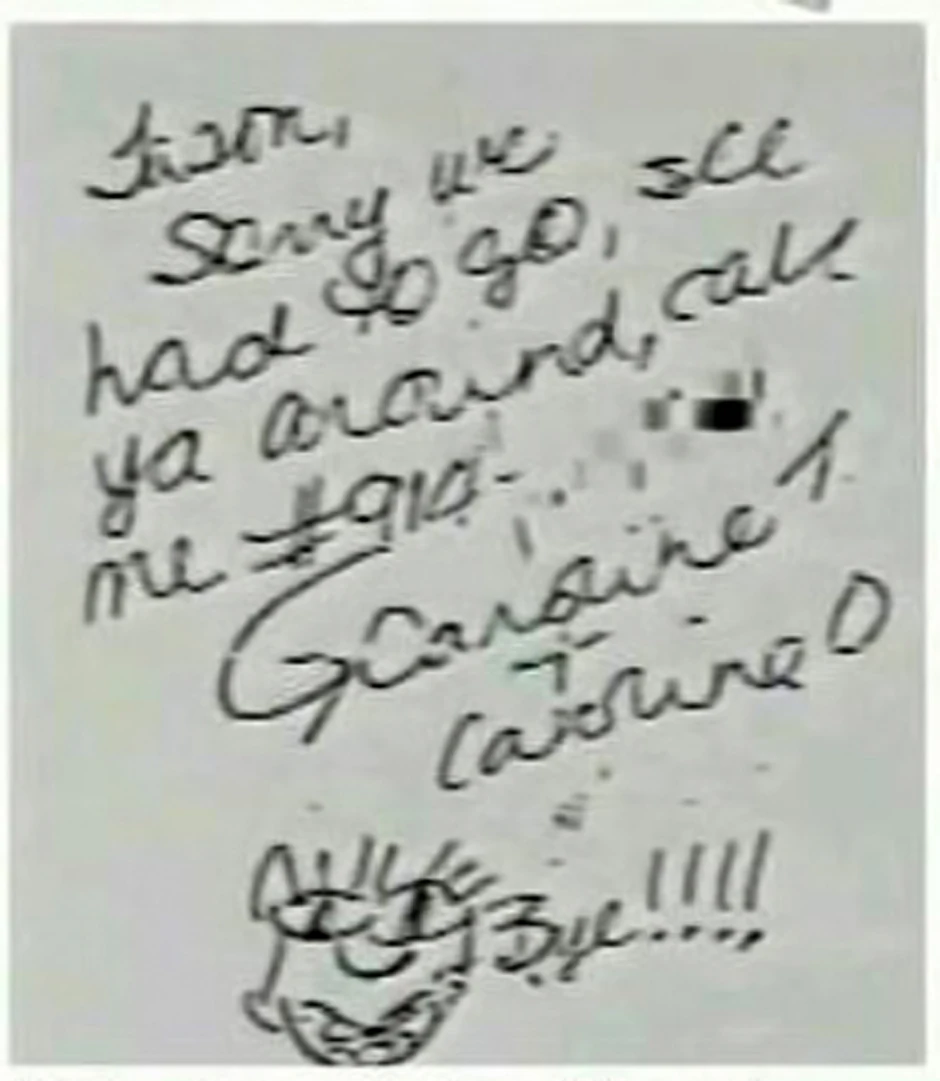 Jason,
Sorry we
had to go, see
ya around, call
me #910-
Caroline T.
+
Caroline D
Bye!!!!